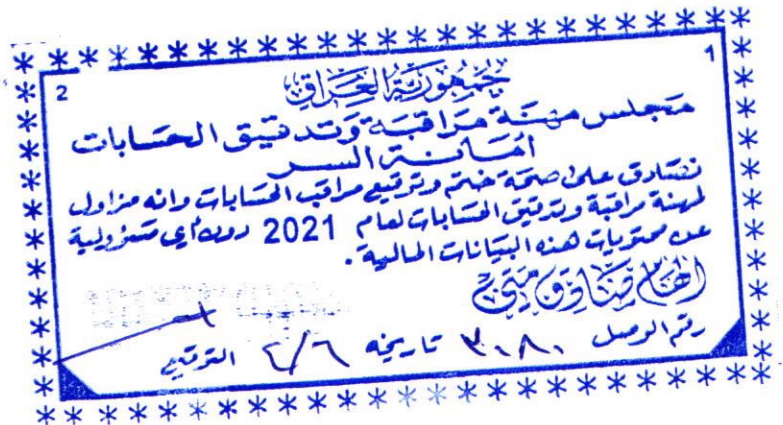 2 1
جمهورية العراق
مجلس مهنة مراقبة وتدقيق الحسابات
أمانة السر
نصادق على صحة ختم وتوقيع مراقب الحسابات وانه مزاول
لمهنة مراقبة وتدقيق الحسابات لعام 2021 دون أي مسؤولية
عن محتويات هذه البيانات المالية.
الهام صادق متي
رقم الوصل ٣٠٨٠ تاريخه ٢/٦ التوقيع